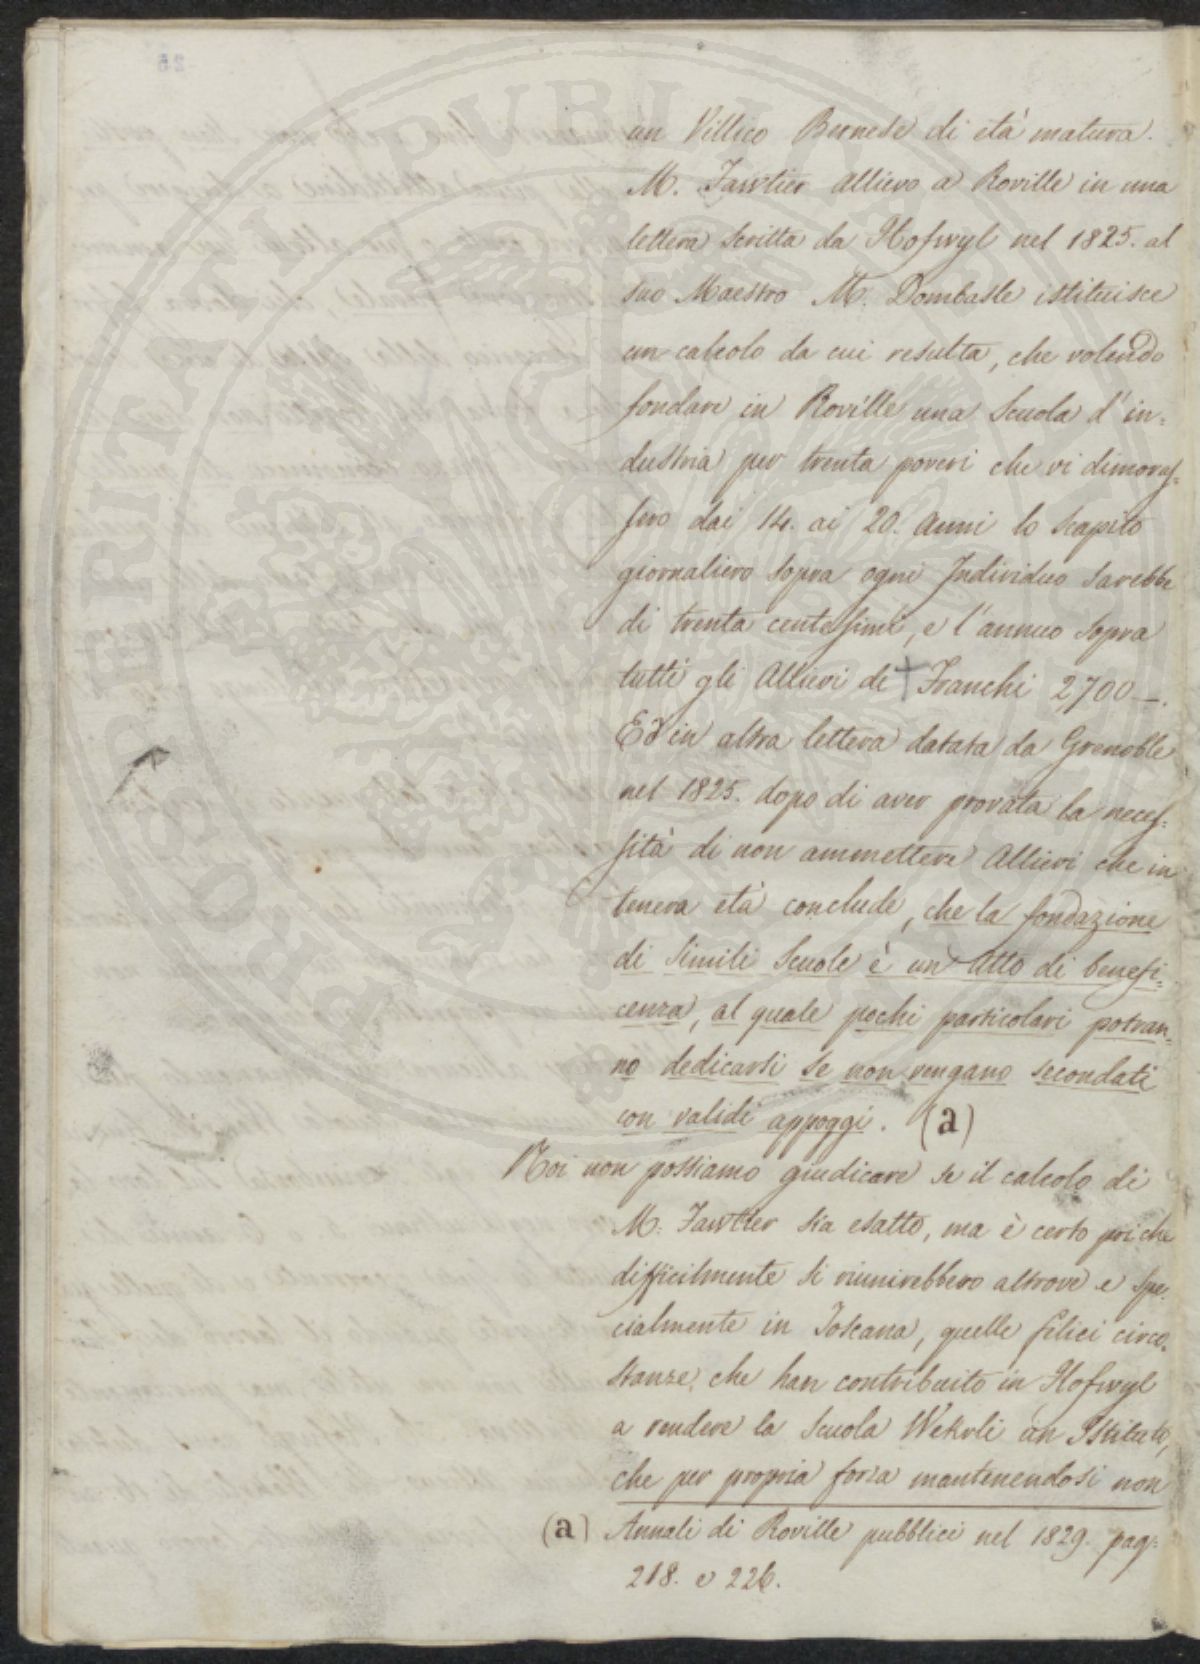 un Villico Bernese di età matura.
M. Fawtier Allievo a Roville in una
lettera scritta da Hofwyl nel 1825. al
suo Maestro M. Dombasle istituisce
un calcolo da cui resulta, che volendo
fondare in Roville una Scuola d'in=
dustria per trenta poveri che vi dimoras=
sero dai 14. ai 20. Anni lo scapito
giornaliero sopra ogni Individuo sarebbe
di trenta centesimi, e l'annuo sopra
tutti gli Allievi di + Franchi 2700 —.
Ed in altra lettera datata da Grenoble
nel 1825. dopo di aver provata la neces=
sità di non ammettere Allievi che in
tenera età conclude, che la fondazione
di simili Scuole è un Atto di benefi=
cenza, al quale pochi particolari potran=
no dedicarsi se non vengano secondati
con validi appoggi. (a)
Noi non possiamo giudicare se il calcolo di
M. Fawtier sia esatto, ma è certo poi che
difficilmente si riunirebbero altrove e spe=
cialmente in Toscana, quelle felici circo=
stanze, che han contribuito in Hofwyl
a rendere la Scuola Wehrli un Istituto,
che per propria forza mantenendosi non
(a) Annali di Roville pubblici nel 1829. pag:
218. e 226.
PROSPERITATI PUBLICAE